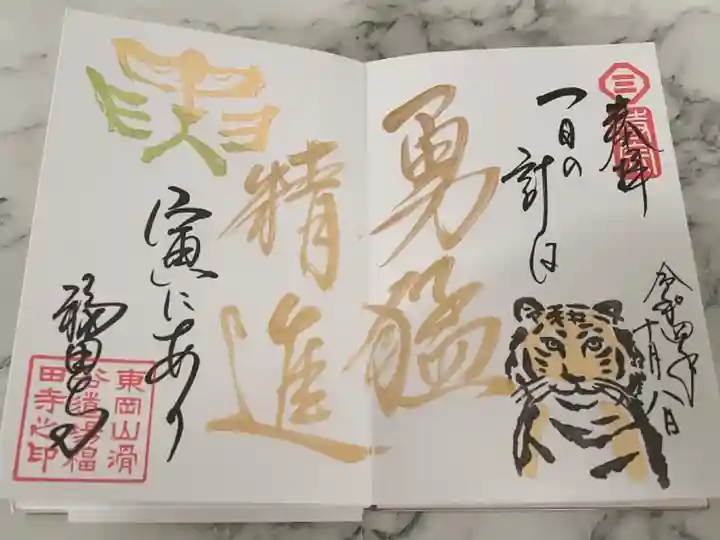 奉拝
一日の
計は
令和四年
十月八日
勇猛
精進
寅にあり
福田寺
東岡山滑
谷道場福
田寺之印